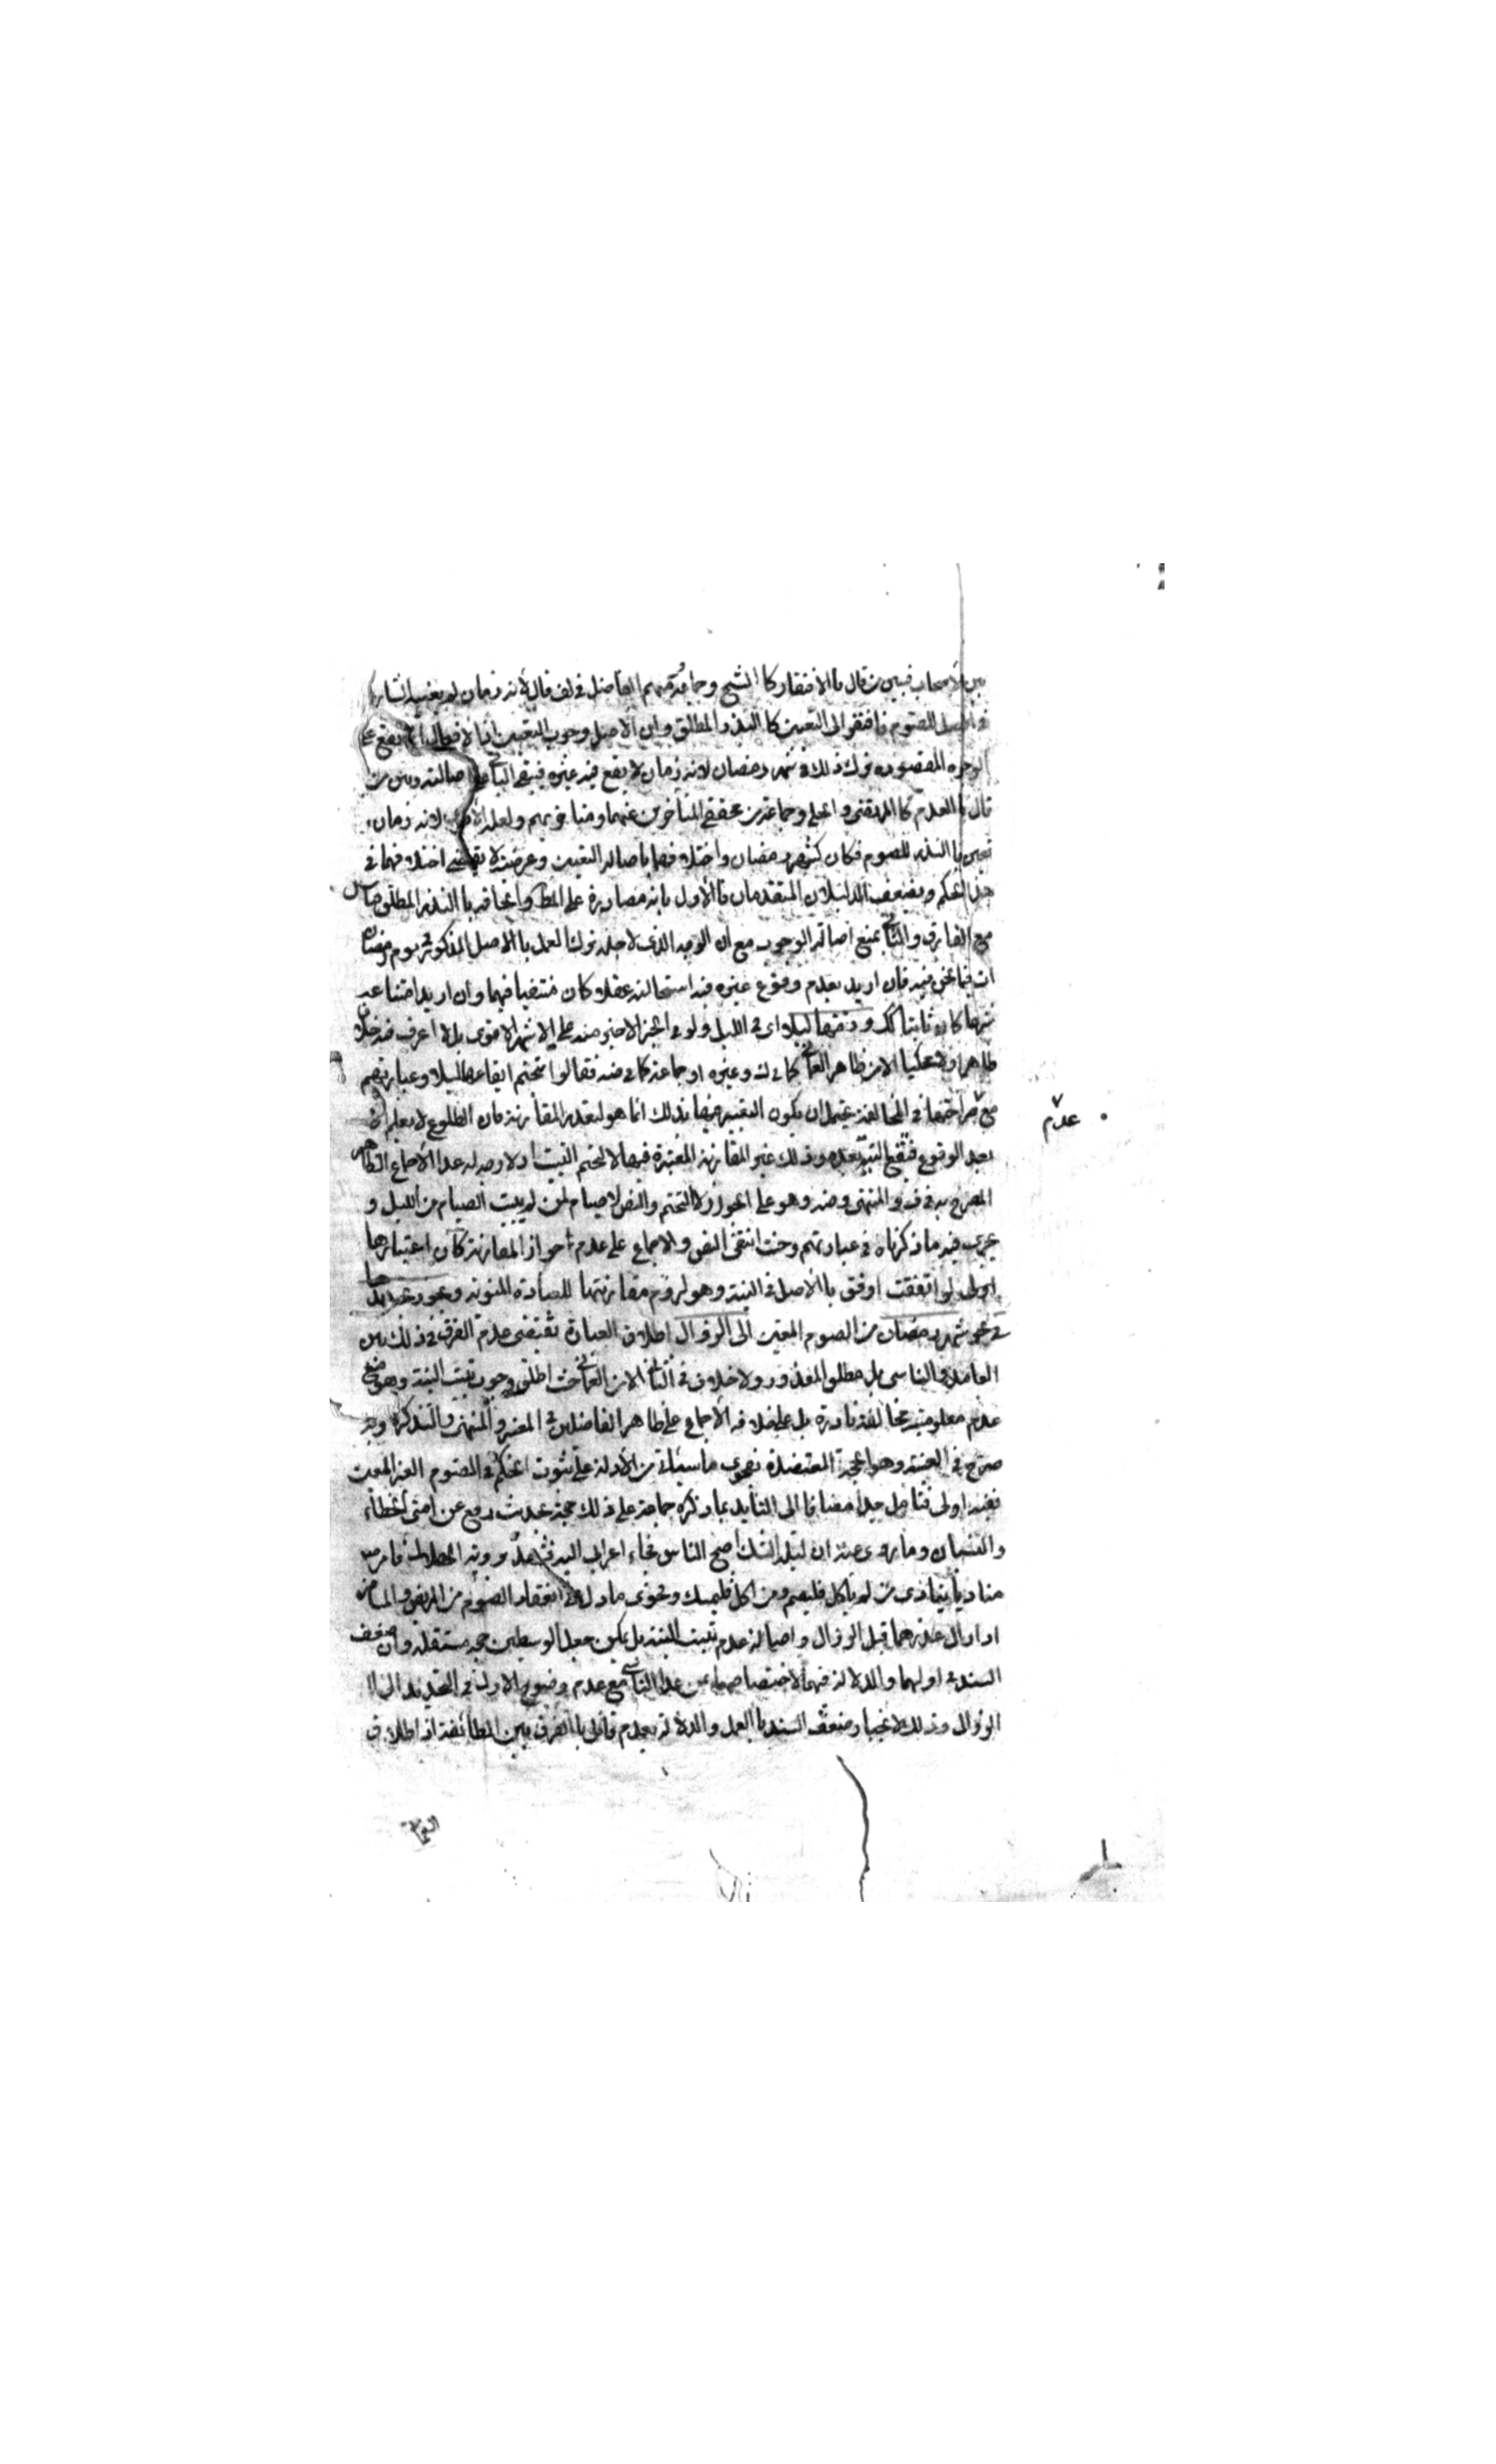 بين الاصحاب فبين من قال بالافتقار كالشيخ وجماعة منهم الفاضل في لف قال لانه زمان لم يعينه الشارع
في الاصل للصوم فافتقر الى التعيين كالنذر المطلق وان الاصل وجوب التعيين اذ الافعال انما تقع على
الوجوه المقصودة ترك ذلك في شهر رمضان لانه زمان لا يقع فيه غيره فيبقى الباقي على اصالته وبين من
قال بالعدم كالمرتضى والحلي وجماعة من محققي المتأخرين عنهما ومتأخريهم ولعله الاقرب لانه زمان
تعين بالنذر للصوم فكان كشهر رمضان واختلافهما باصالة التعيين وعرضيته لا يقتضي اختلافهما في
هذا الحكم ويضعف الدليلان المتقدمان فالاول بانه مصادرة على المط والحاقه بالنذر المطلق قياس
مع الفارق والثاني بمنع اصالة الوجوب مع ان الوجه الذي لاجله ترك العمل بالاصل المذكور في صوم رمضان
ات فيما نحن فيه فان اريد بعدم وقوع غيره فيه استحالته عقلا كان منتفيا فيهما وان اريد امتناعه
شرعا كان ثابتا كك ووقتها ليلا اي في الليل ولو في الجزء الاخير منه على الاشهر الاقوى بل لا اعرف فيه خلافا
ظاهرا ولا محكيا الا من ظاهر العماني كما في لك وغيره او جماعة كما في ضه فقالوا بتحتم ايقاعها ليلا وعبارتهم
مع صراحتها في المخالفة يحتمل ان يكون التعبير فيها بذلك انما هو لتعذر المقارنة فان الطلوع لا يعلم الا
عدم
بعد الوقوع فتقع النية بعده وذلك غير المقارنة المعتبرة فيها لا لتحتم التبييت اذ لا وجه له عدا الاجماع الظاهر
المصرح به في ف والمنتهى وضه وهو على الجواز لا التحتم والنص لا صيام لمن لم يبيت الصيام من الليل و
يجري فيه ما ذكرناه في عبارتهم وحيث انتفى النص والاجماع على عدم جواز المقارنة كان اعتبارها
اولى لو اتفقت اوفق بالاصل في النية وهو لزوم مقارنتها للعبادة المنوية ويجوز تجديدها
في نحو شهر رمضان من الصوم المعين الى الزوال اطلاق العبارة يقتضي عدم الفرق في ذلك بين
العامد والناسي بل مطلق المعذور ولا خلاف في الثاني الا من العماني حيث اطلق وجوب تبييت النية وهو مع
عدم معلومية مخالفته نادرة بل على خلافه الاجماع على ظاهر الفاضلين في المعتبر والمنتهى والتذكرة وبه
صرح في الغنية وهو الحجة المعتضدة بفحوى ما سيأتي من الادلة على ثبوت الحكم في الصوم الغير المعين
ففيه اولى فتامل جدا مضافا الى التأيد بما ذكره جماعة على ذلك حجة بحديث رفع عن امتي الخطاء
والنسيان وما روي عنه ان ليلة الشك اصبح الناس فجاء اعرابي اليه فشهد برؤية الهلال فامر ص
مناديا ينادي من لم ياكل فليصم ومن اكل فليمسك وفحوى ما دل على انعقاد الصوم من المريض والمسافر
اذا زال عذرهما قبل الزوال واصالة عدم تبييت النية بل يمكن جعل الوسطين حجة مستقلة وان ضعف
السند في اولهما والدلالة فيهما لاختصاصهما بمن عدا الناسي مع عدم وضوح الاول في التحديد الى
الزوال وذلك لانجبار ضعف السند بالعمل والدلالة بعدم قائل بالفرق بين الطائفة اذ اطلاق